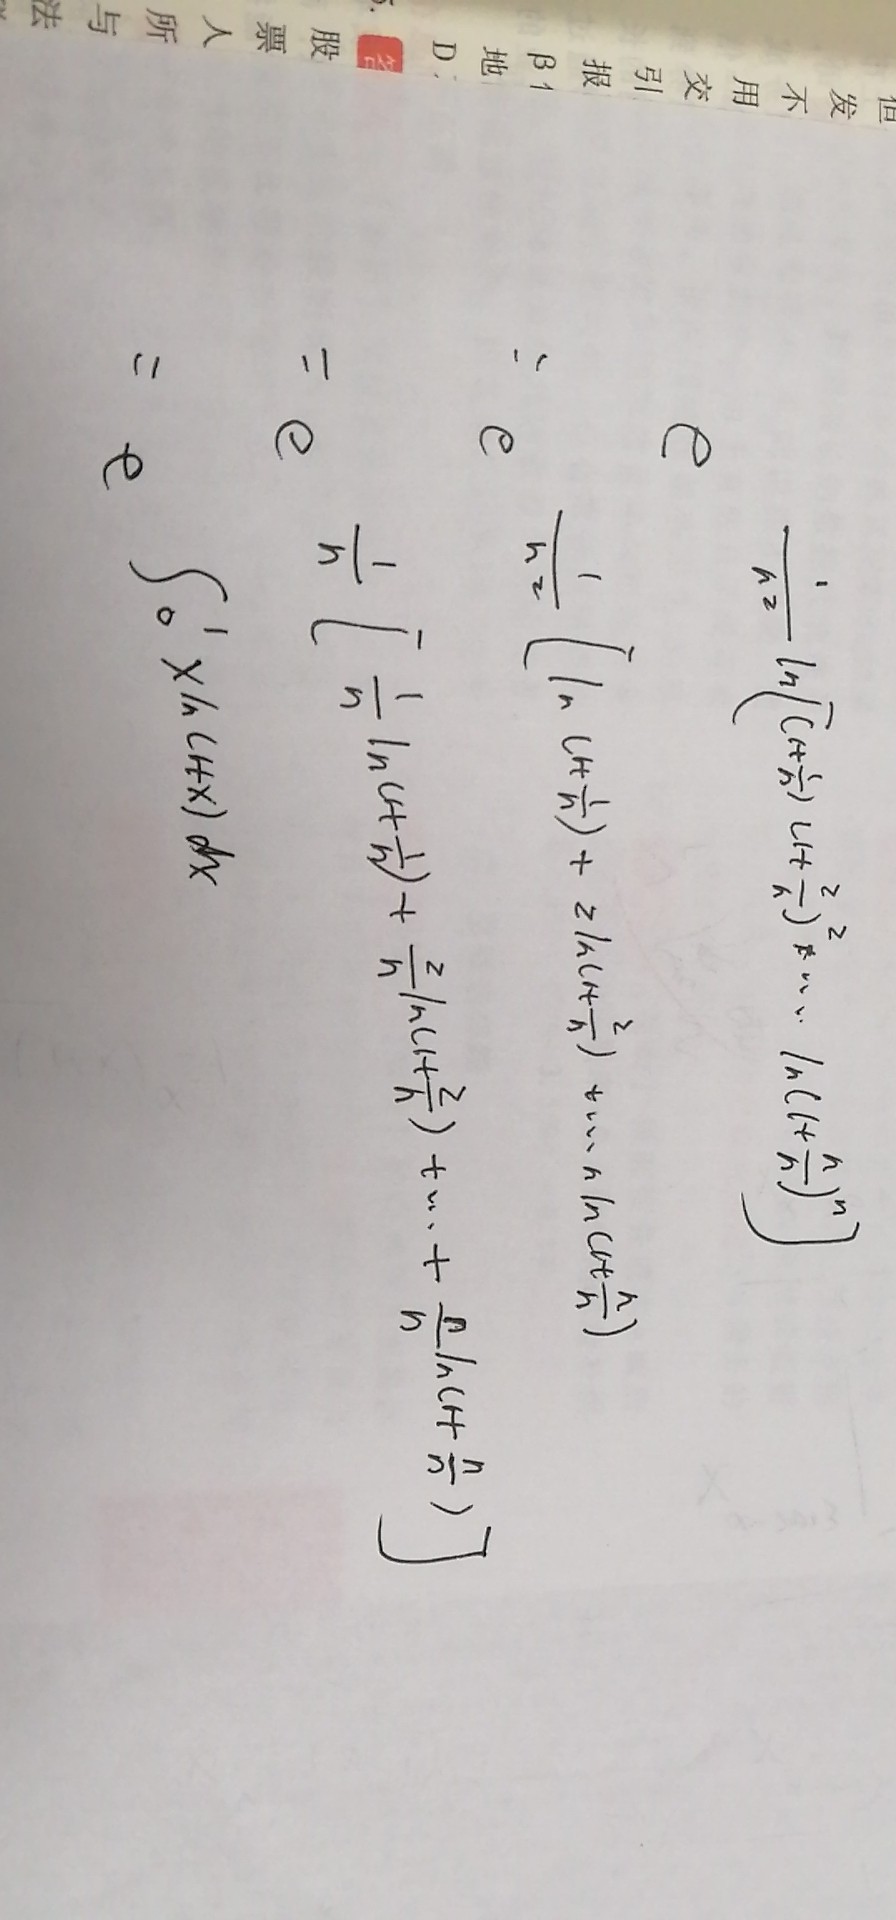 但
发
不
用
交
引
报
β1
地
D
答
股
票
人
所
与
法
e^{\frac{1}{n^2} ln[(1+\frac{1}{n})(1+\frac{2}{n})^2 * ... ln(1+\frac{n}{n})^n]}
= e^{\frac{1}{n^2}[ln(1+\frac{1}{n}) + 2ln(1+\frac{2}{n}) + ... n ln(1+\frac{n}{n})}
= e^{\frac{1}{n}[\frac{1}{n}ln(1+\frac{1}{n}) + \frac{2}{n}ln(1+\frac{2}{n}) + ... + \frac{n}{n}ln(1+\frac{n}{n})]}
= e^{∫_0^1 x ln(1+x) dx}